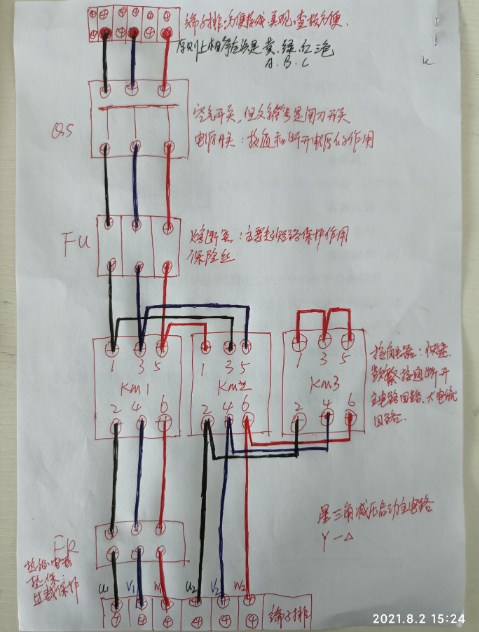 端子排:方便接线 美观,查板方便.
原则上相序应该是 黄.绿.红三色
A. B. C
QS
空气开关,但文字符号是闸刀开关
电源开关:接通和断开电源的作用
FU
熔断器:主要起短路保护作用
保险丝
1 3 5 1 3 5 1 3 5
KM1 KM2 KM3
2 4 6 2 4 6 2 4 6
接触器:快速
频繁接通断开
主电路回路,大电流
回路.
星三角减压启动主电路
Y-△
FR
热继电器
过载保护
U1 V1 W1 U2 V2 W2
端子排
2021.8.2 15:24